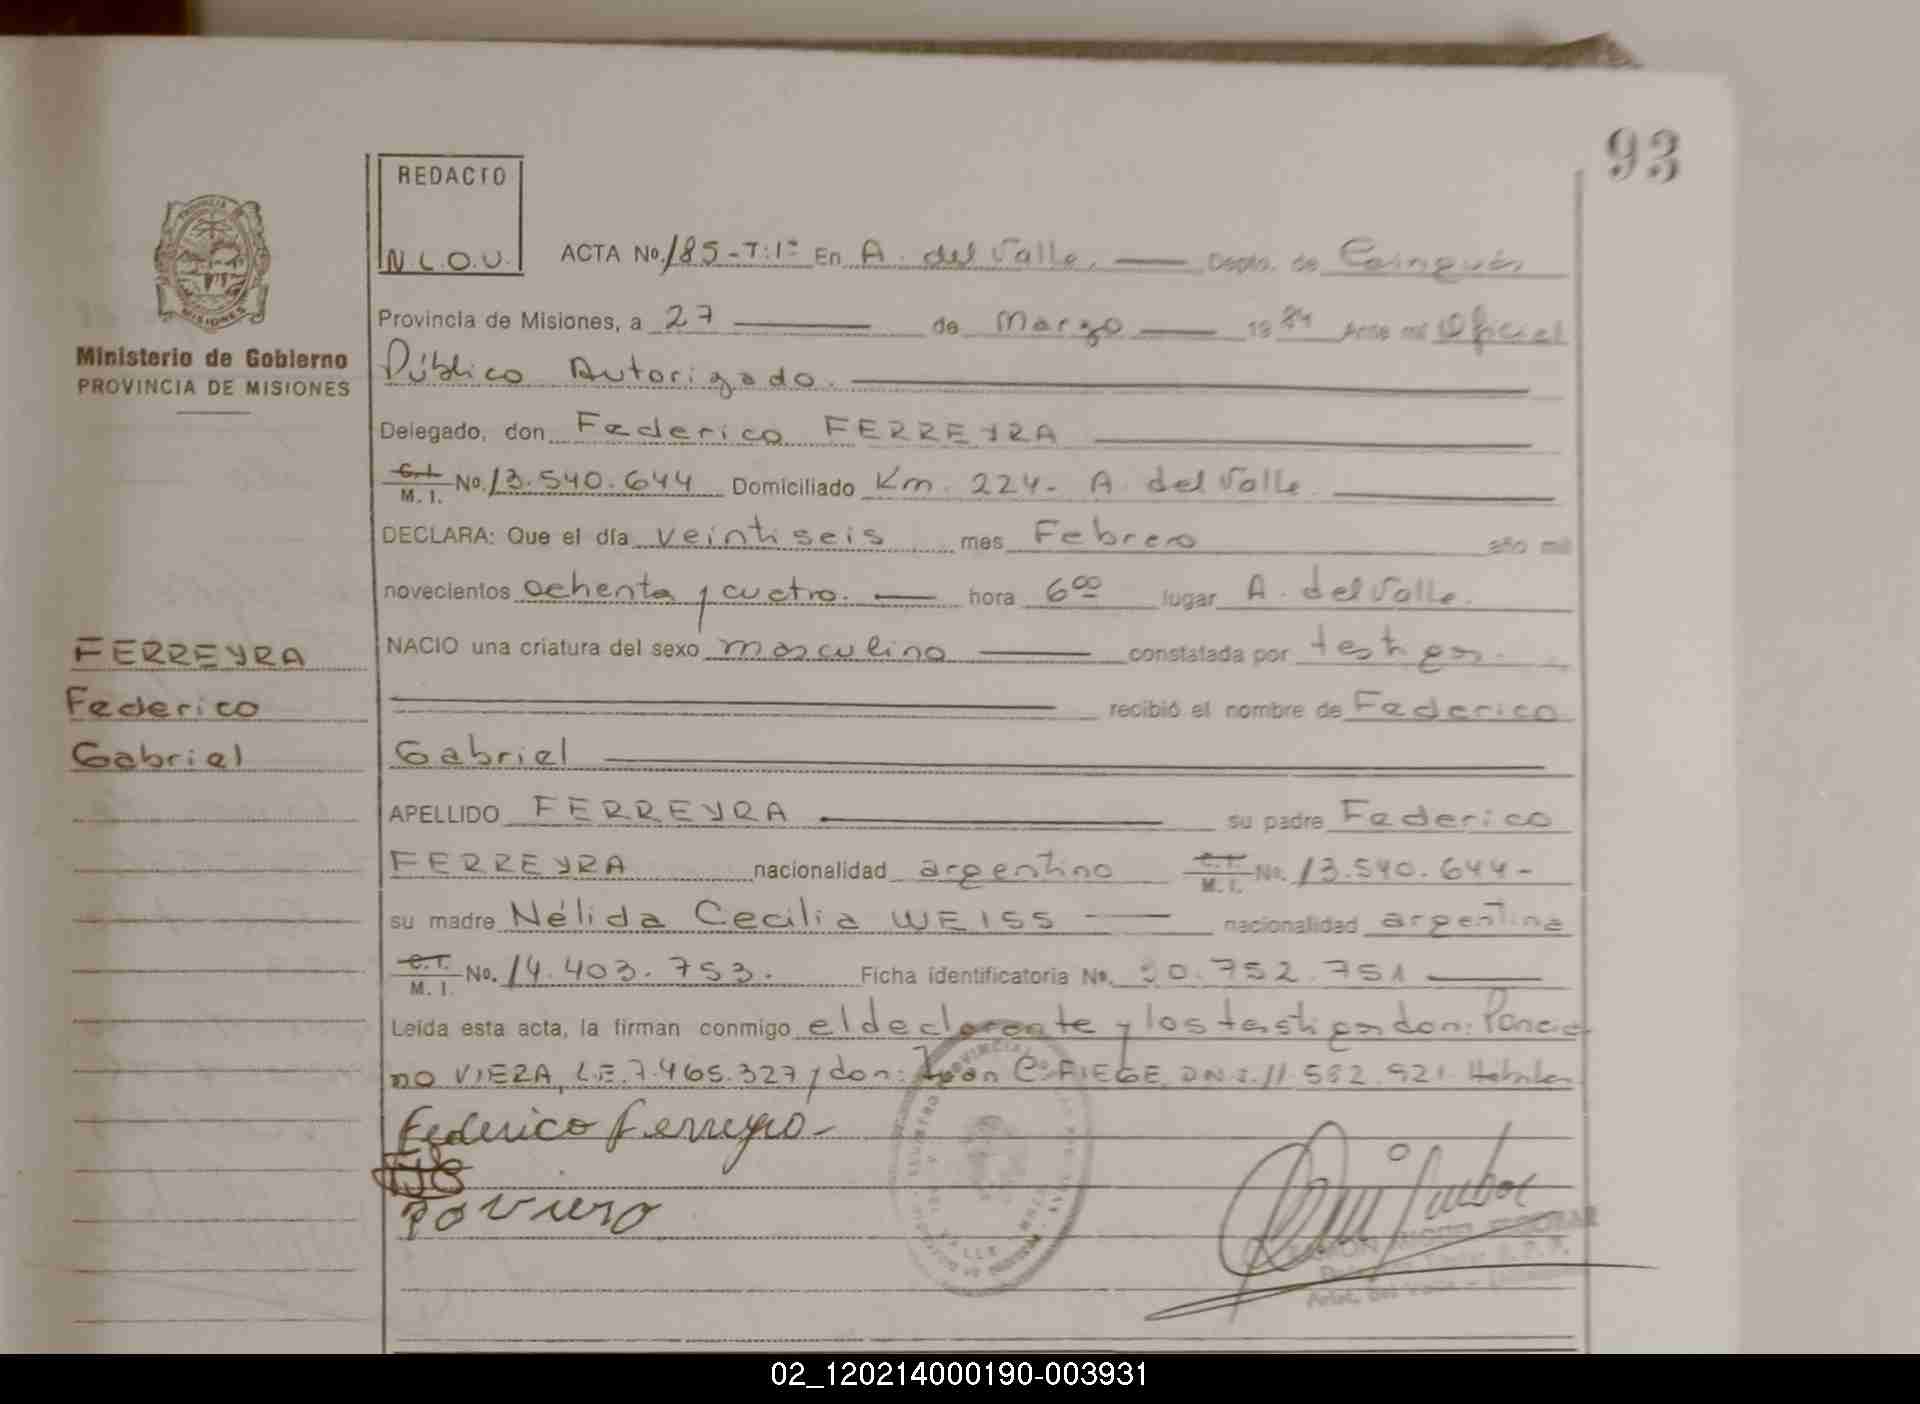 93
REDACTO
N.L.O.U.
ACTA No. 185-T:1º En A. del Valle, Depto. de Cainguás
Provincia de Misiones, a 27 de Marzo 1984 Ante mi Oficial
Público Autorizado.
Ministerio de Gobierno
PROVINCIA DE MISIONES
Delegado, don Federico FERREYRA
C.I. M.I. No. 13.540.644 Domiciliado Km. 224- A. del Valle
DECLARA: Que el día veintiseis mes Febrero año mil
novecientos ochenta y cuatro. hora 6 00 lugar A. del Valle.
NACIO una criatura del sexo masculino constatada por testigos.
recibió el nombre de Federico
Gabriel
FERREYRA
Federico
Gabriel
APELLIDO FERREYRA su padre Federico
FERREYRA nacionalidad argentino C.I. M.I. No. 13.540.644-
su madre Nélida Cecilia WEISS nacionalidad argentina
C.I. M.I. No. 14.403.753. Ficha identificatoria No. 30.752.751
Leida esta acta, la firman conmigo el declarante y los testigos don: Poncia
no VIERA, L.E. 7.465.327 y don: Juan C. FIEGE, D.N.I. 11.582.921
Federico Ferreyra
MISIONES
VALLE
02_120214000190-003931